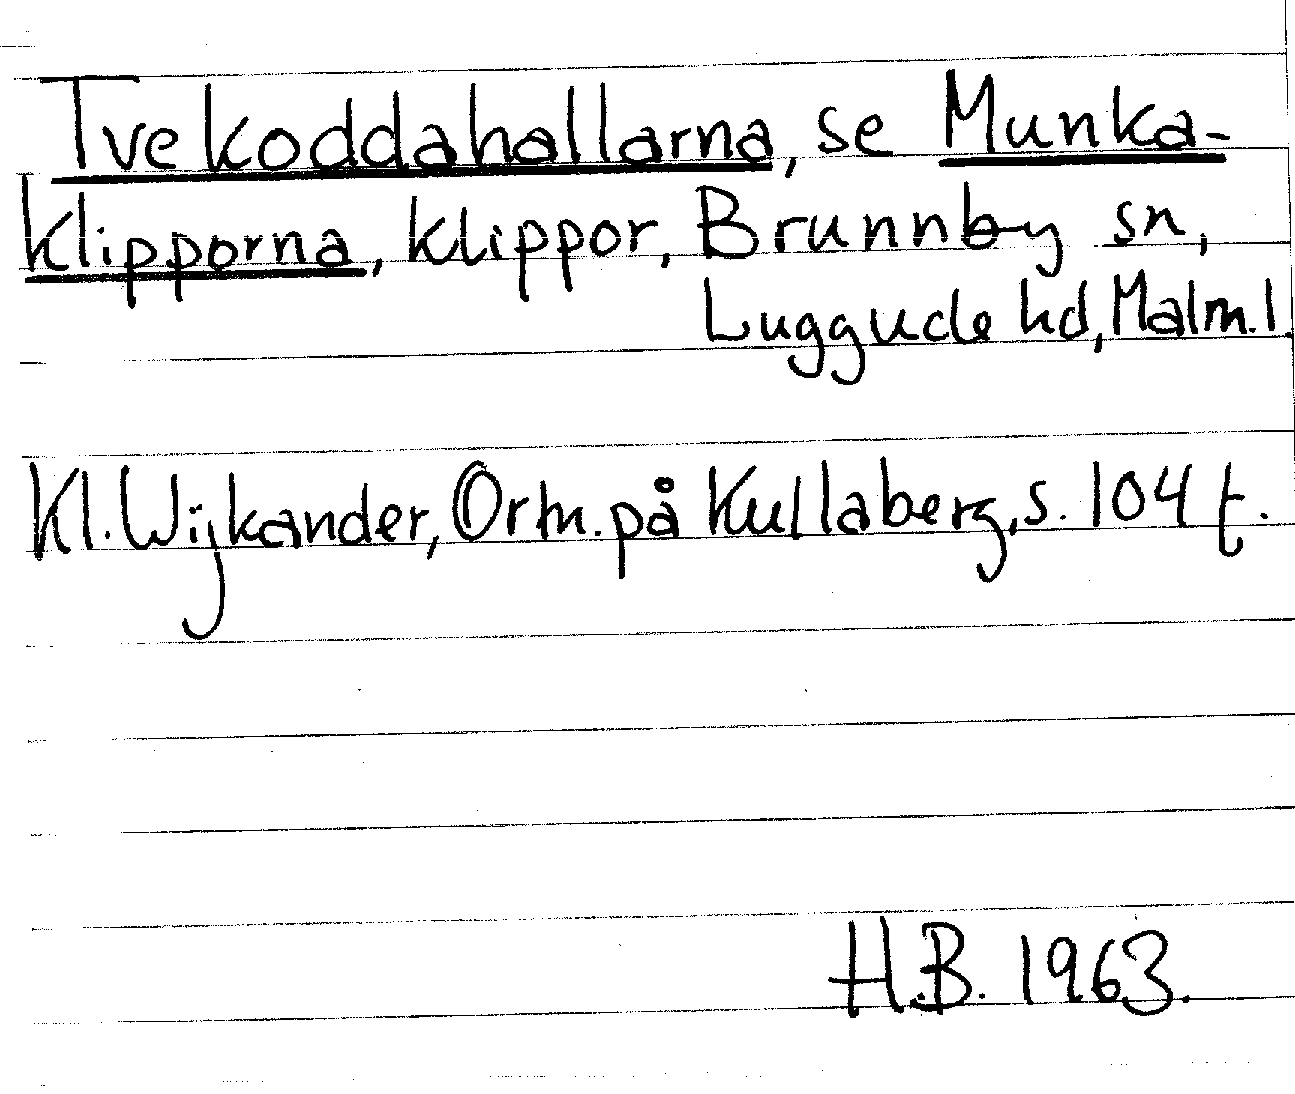 Tvekoddahallarna, se Munka-
klipporna, klippor, Brunnby sn,
Luggude hd, Malm. l.
Kl. Wijkander, Ortn. på Kullaberg, s. 104 f.
H.B. 1963.